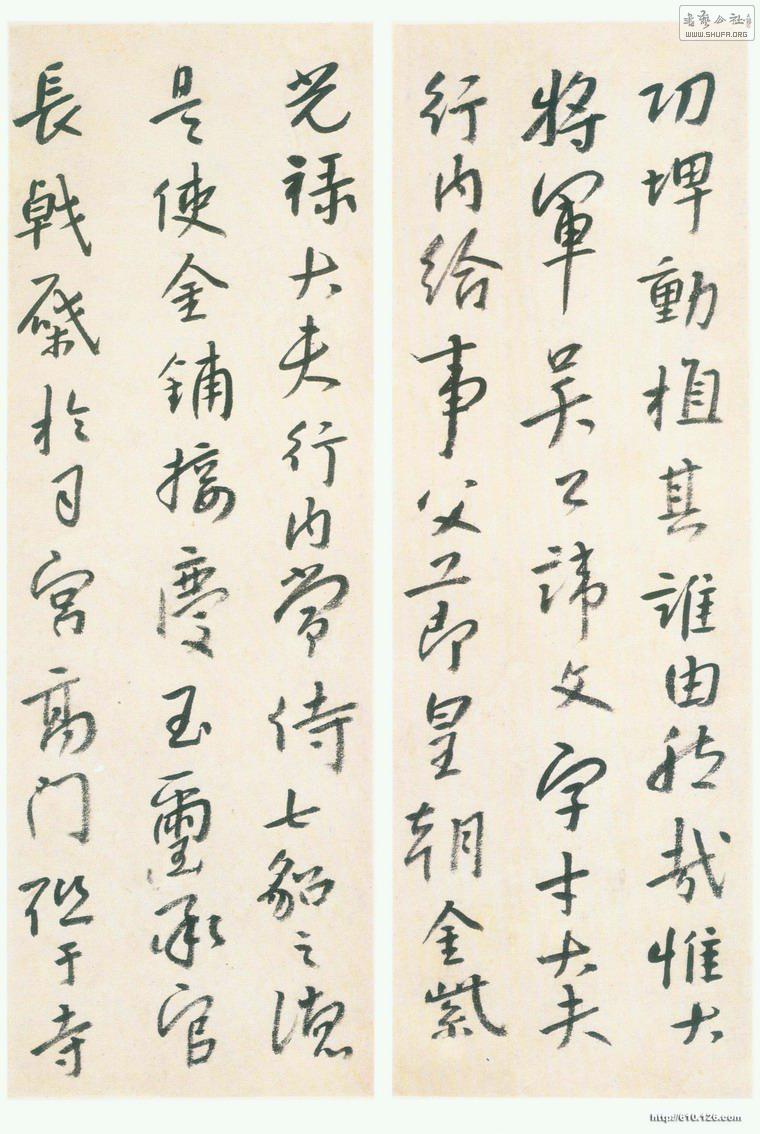 書藝公社
WWW.SHUFA.ORG
功埤動植其誰由然哉惟大
將軍吳公諱文字才大夫
行內給事父公即皇朝金紫
光祿大夫行內常侍七貂之德
是使金鋪接慶玉璽承官
長戟於司宮高門于寺
http://610.126.com